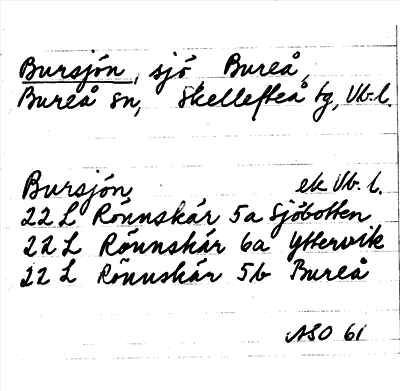 Bursjön, sjö Bureå,
Bureå sn, Skellefteå tg, Vb. l.
Bursjön ek Vb. l.
22 L Rönnskär 5a Sjöbotten
22 L Rönnskär 6a Yttervik
22 L Rönnskär 5b Bureå
ASO 61